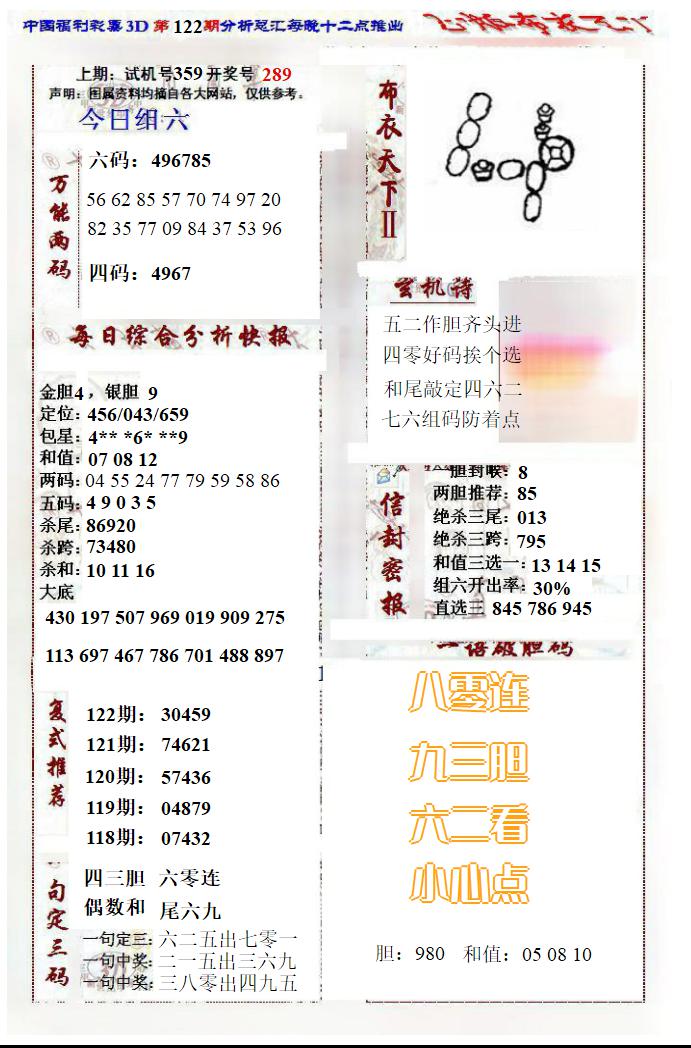 中国福利彩票3D 第122期分析总汇每晚十二点推出
上期: 试机号359开奖号 289
声明: 图属资料均摘自各大网站，仅供参考。
今日组六
万能两码
六码: 496785
56 62 85 57 70 74 97 20
82 35 77 09 84 37 53 96
四码: 4967
每日综合分析快报
金胆4，银胆 9
定位: 456/043/659
包星: 4** *6* **9
和值: 07 08 12
两码: 04 55 24 77 79 59 58 86
五码: 4 9 0 3 5
杀尾: 86920
杀跨: 73480
杀和: 10 11 16
大底
430 197 507 969 019 909 275
113 697 467 786 701 488 897
复式推荐
122期: 30459
121期: 74621
120期: 57436
119期: 04879
118期: 07432
句定三码
四三胆 六零连
偶数和 尾六九
一句定三: 六二五出七零一
一句中奖: 二一五出三六九
一句中奖: 三八零出四九五
布衣天下II
玄机诗
五二作胆齐头进
四零好码挨个选
和尾敲定四六二
七六组码防着点
信封密报
胆封喉: 8
两胆推荐: 85
绝杀三尾: 013
绝杀三跨: 795
和值三选一: 13 14 15
组六开出率: 30%
直选三 845 786 945
语破胆码
八零连
九三胆
六二看
小心点
胆: 980 和值: 05 08 10